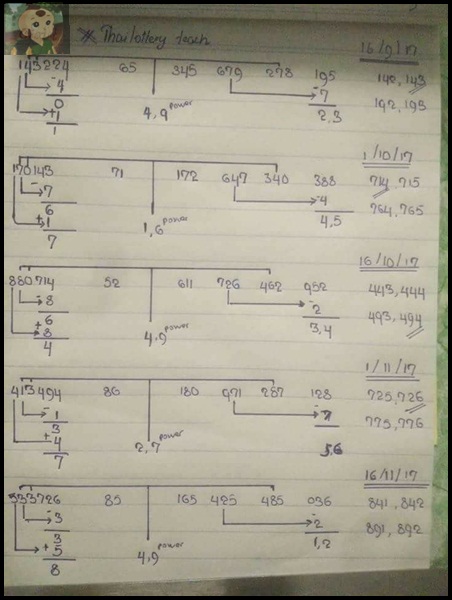 Thai lottery teach
16/9/17
143224 65 345 679 273 195 142, 143
-4 -7 192, 193
0 2,3
+1 4,9 power
1
1/10/17
170143 71 172 647 340 388 714, 715
-7 -4 764, 765
6 4,5
+1 1,6 power
7
16/10/17
880714 52 611 726 462 952 443, 444
-8 -2 493, 494
6 3,4
+8 4,9 power
4
1/11/17
413494 86 180 971 287 128 725, 726
-1 -7 775, 776
3 5,6
+4 2,7 power
7
16/11/17
533726 85 165 425 485 036 841, 842
-3 -2 891, 892
3 1,2
+5 4,9 power
8